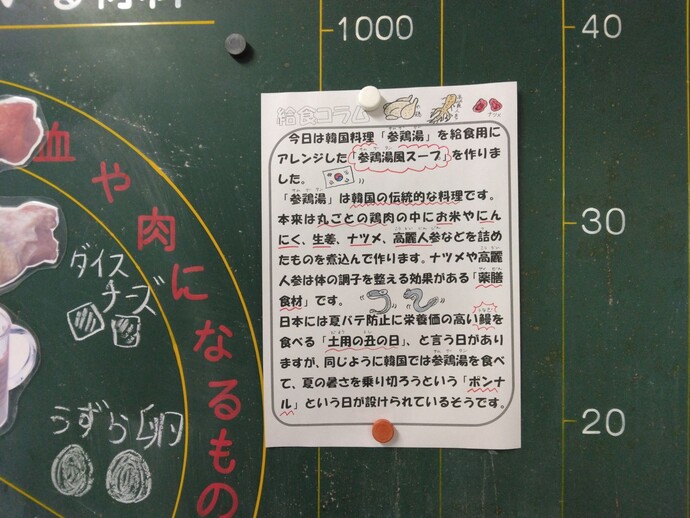 1000
40
30
20
血や肉になるもの
ダイス
チーズ
うずら卵
給食コラム
ナツメ
今日は韓国料理「参鶏湯」を給食用に
アレンジした「参鶏湯風スープ」を作りま
した。
「参鶏湯」は韓国の伝統的な料理です。
本来は丸ごとの鶏肉の中にお米やにん
にく、生姜、ナツメ、高麗人参などを詰め
たものを煮込んで作ります。ナツメや高麗
人参は体の調子を整える効果がある「薬膳
食材」です。
日本には夏バテ防止に栄養価の高い鰻を
食べる「土用の丑の日」、と言う日があり
ますが、同じように韓国では参鶏湯を食べ
て、夏の暑さを乗り切ろうという「ポンナ
ル」という日が設けられているそうです。